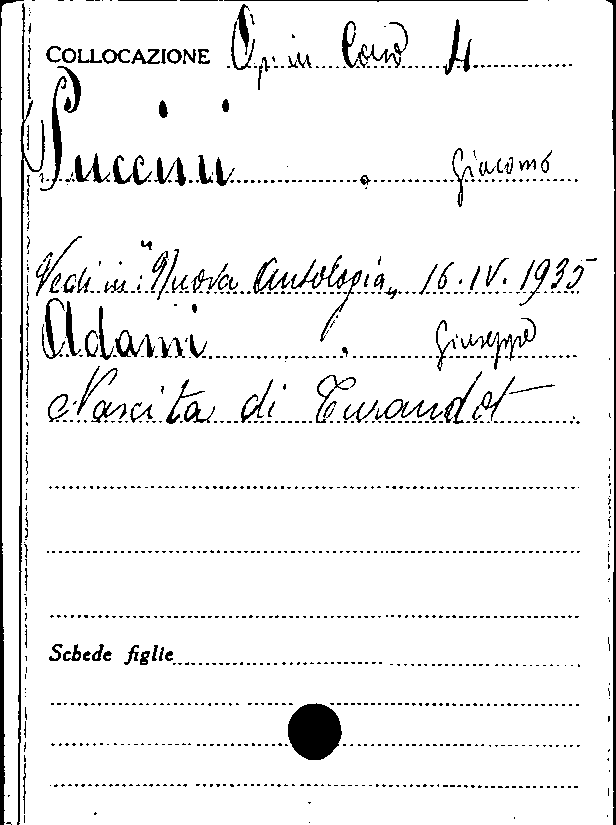 COLLOCAZIONE Op. in Corso 4
Puccini . Giacomo
Vedi in: "Nuova Antologia„ 16.IV.1935
Adami . Giuseppe
Nascita di Turandot.
Schede figlie